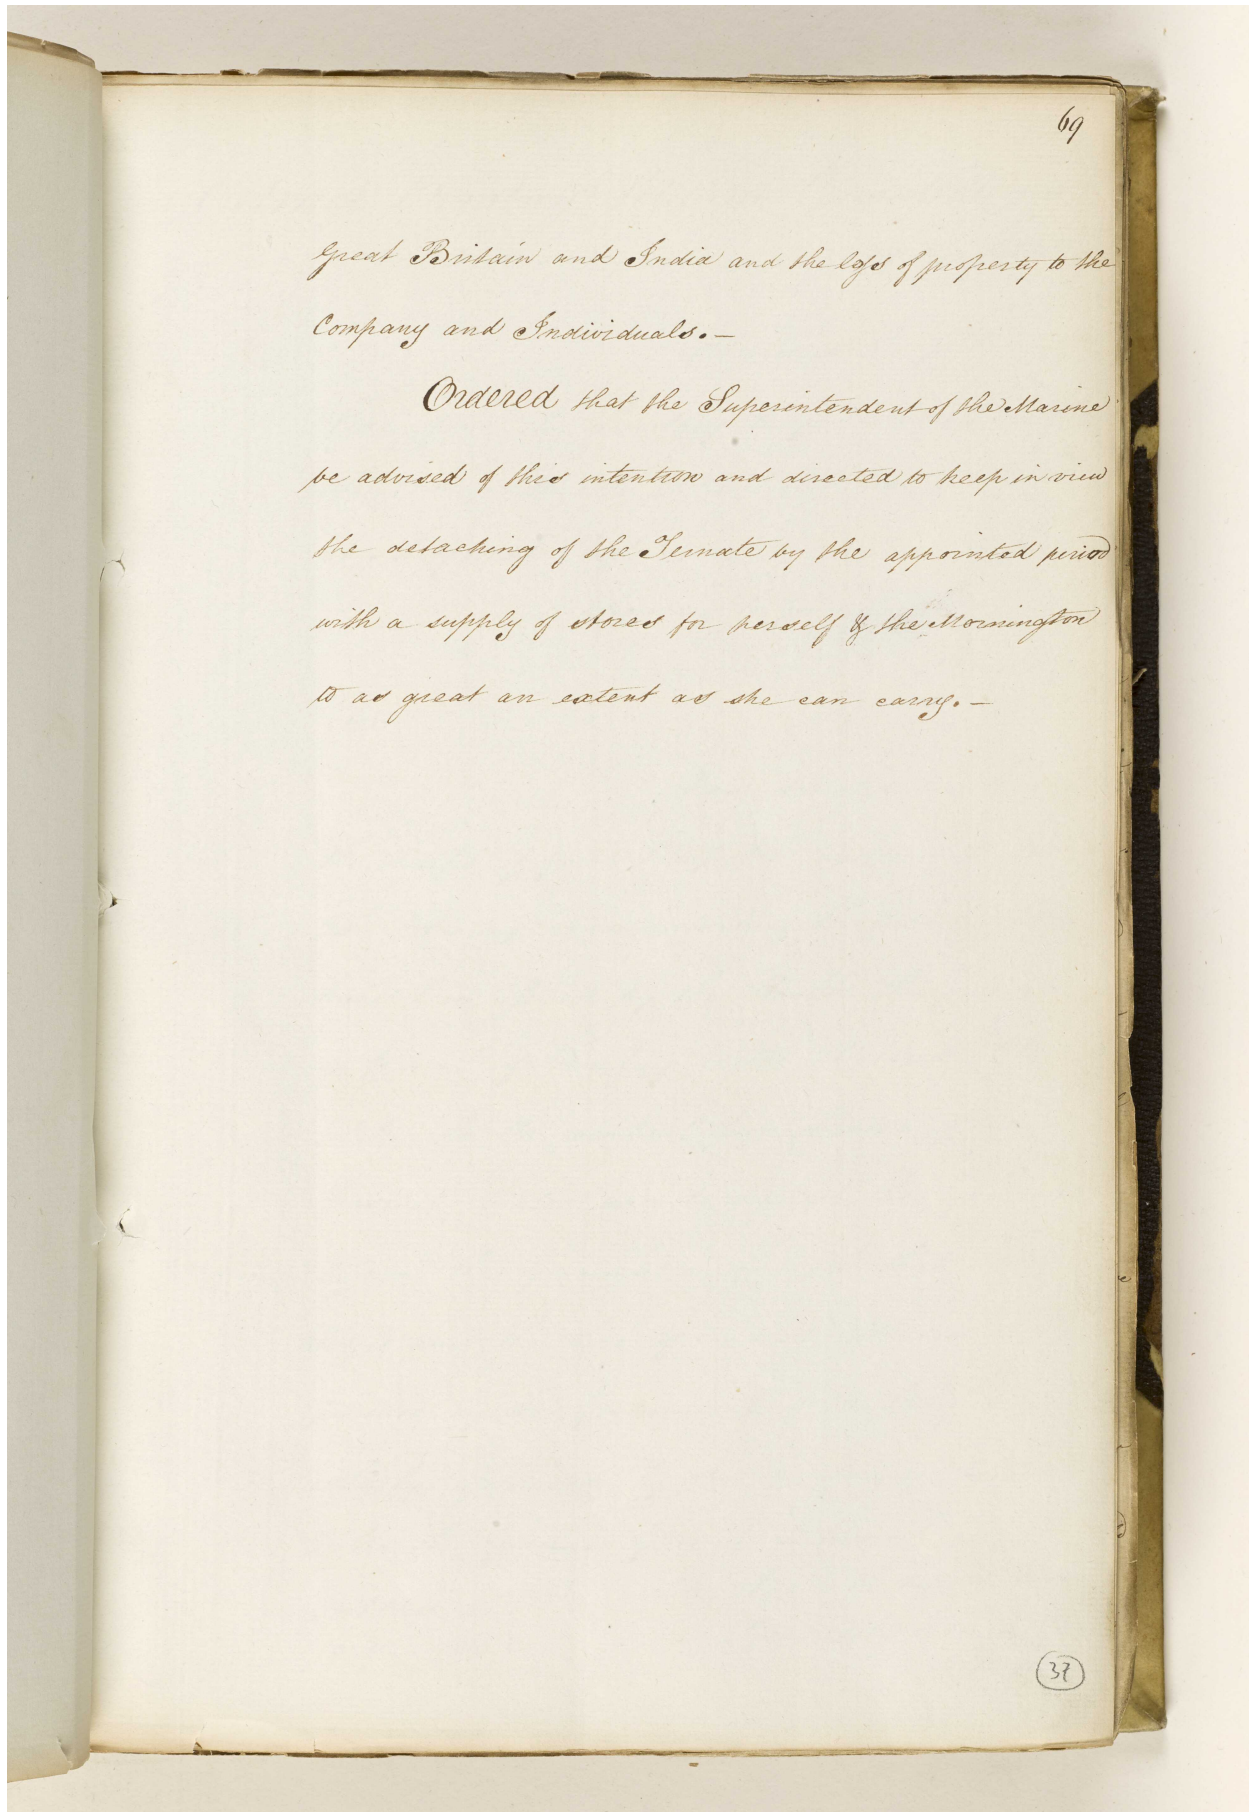 69
Great Britain and India and the loss of property to the
Company and Individuals. –
Ordered that the Superintendent of the Marine
be advised of this intention and directed to keep in view
the detaching of the Ternate by the appointed period
with a supply of stores for herself & the Mornington
to as great an extent as she can carry. –
37